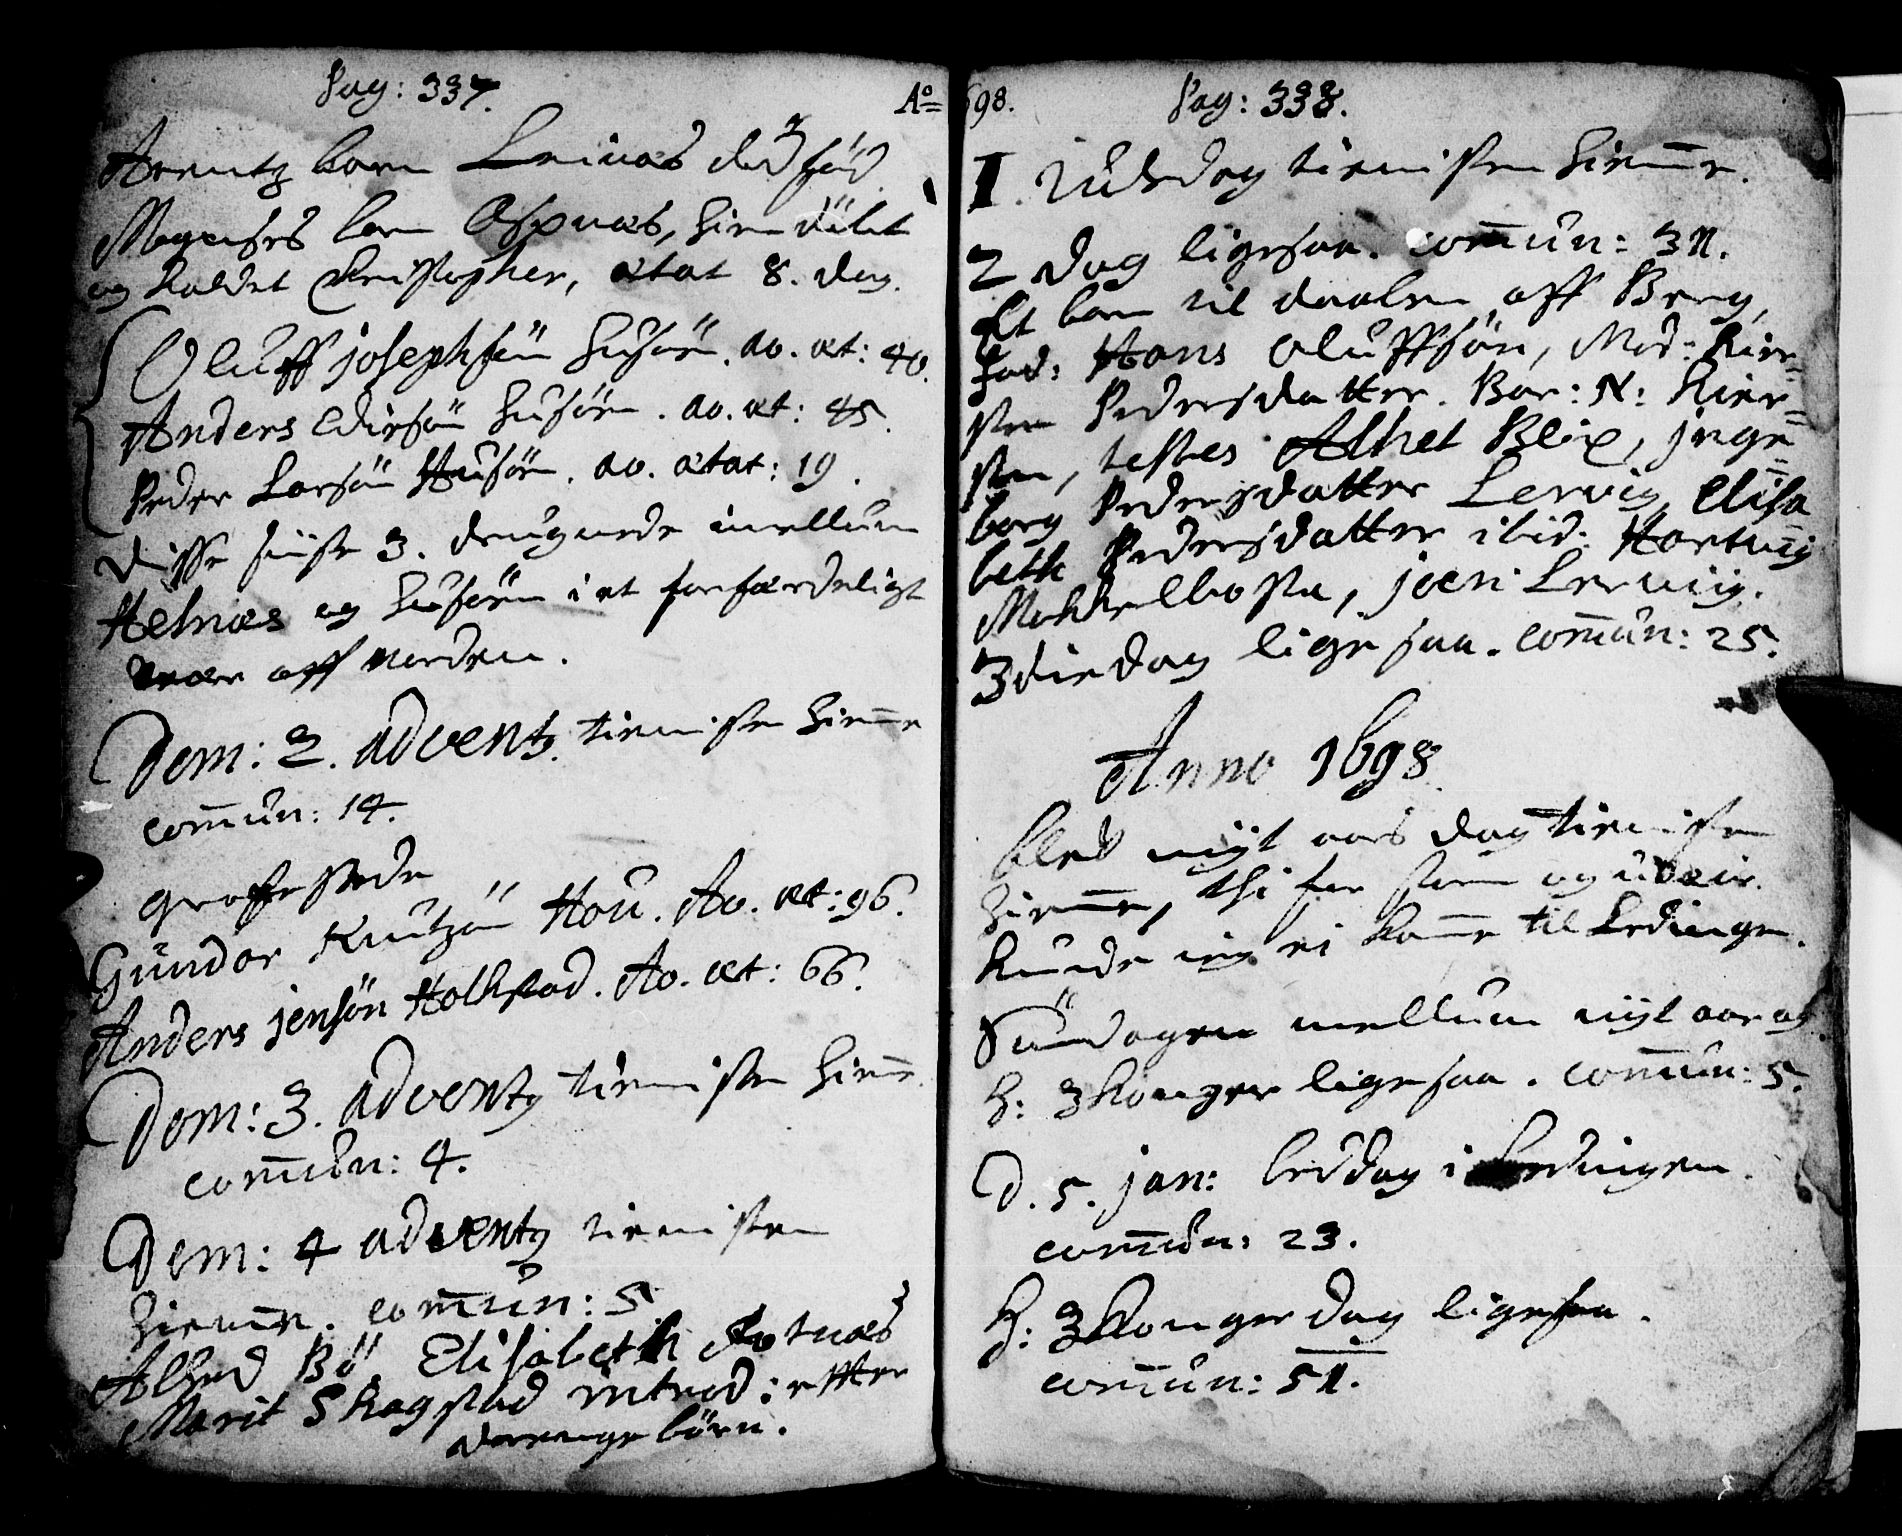 Pag: 337.
Arentz barn Leinæs dødfød.
Mogenses barn Oxnæs, hiemdøbt
og kaldet Christopher, ætat 8. dag.
Oluff josephsøn Husøen. ao. æt: 40.
Anders Eliesøn Husøen. ao. æt: 45.
Peder Larsøn Husøen. ao. ætat: 19.
disse siiste 3. drugnede imellum
Helnæs og Husøen i et forfærdeligt
veær aff norden.
Dom: 2. adventz. tienisten hieme
comun: 14.
graffestede
Gundor Knutzøn Hou. Ao. æt: 96.
Anders jensøn Holkestad. Ao. æt: 66.
Dom: 3. adventz tienisten hieme.
comun: 4.
Dom: 4 adventz tienisten
hieme. comun: 5
Alhed Bø, Elisabeth Rotnæs
Marit Skagstad introd: effter
derenge børn.
Ao 698.
Pag: 338.
I. Juledag tienisten hieme.
2 dag ligesaa. comun: 31.
Et barn til daaben aff Berg,
fad: Hans Oluffsøn, Mod: Kier=
sten Pedersdatter. Bar: N: Kier=
sten, testes Alhet Blix, jnge=
borg Pedersdatter Lervig, Elisa=
beth Pedersdatter ibid: Hartvig
Mokkelbosta, joen Lerviig.
3die dag lige saa. comun: 25.
Anno 1698
bled nyt aars dag tienisten
hieme, thi for storm og uveir
kunde ieg ei kome til Lødingen.
Sundagen mellum nyt aar og
h: 3 konger ligesaa. comun: 5.
d. 5. jan: beddag i Lødingen.
comun: 23.
h: 3 konger dag ligesaa.
comun: 51.